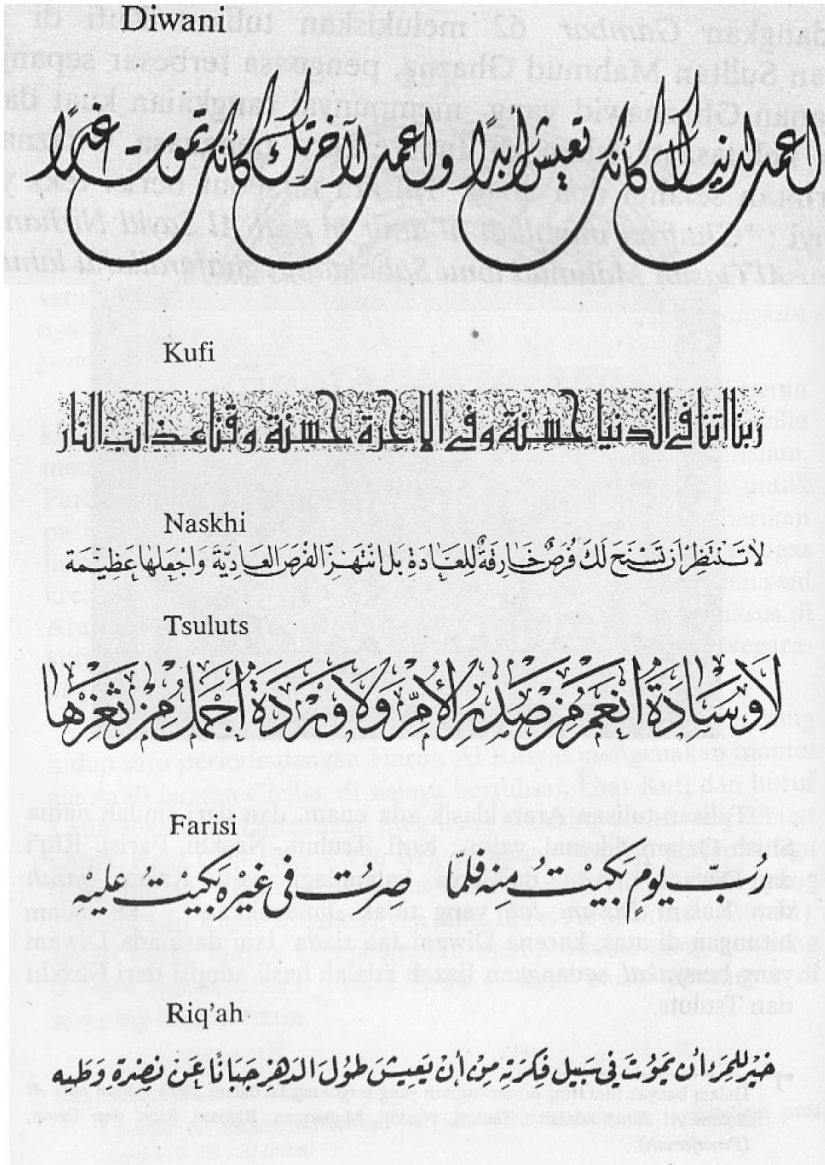 Diwani
اعمل لدنياك كأنك تعيش ابدا واعمل لآخرتك كأنك تموت غدا
Kufi
ربنا اتنا في الدنيا حسنة وفي الاخرة حسنة وقنا عذاب النار
Naskhi
لا تنتظر ان تسنح لك فرص خارقة للعادة بل انتهز الفرص العادية واجعلها عظيمة
Tsuluts
لا وسادة أنعم من صدر الأم ولا وردة أجمل من ثغرها
Farisi
رب يوم بكيت منه فلما صرت في غيره بكيت عليه
Riq'ah
خير للمرء أن يموت في سبيل فكرته من أن يعيش طول الدهر جبانا عن نصرة وطنه